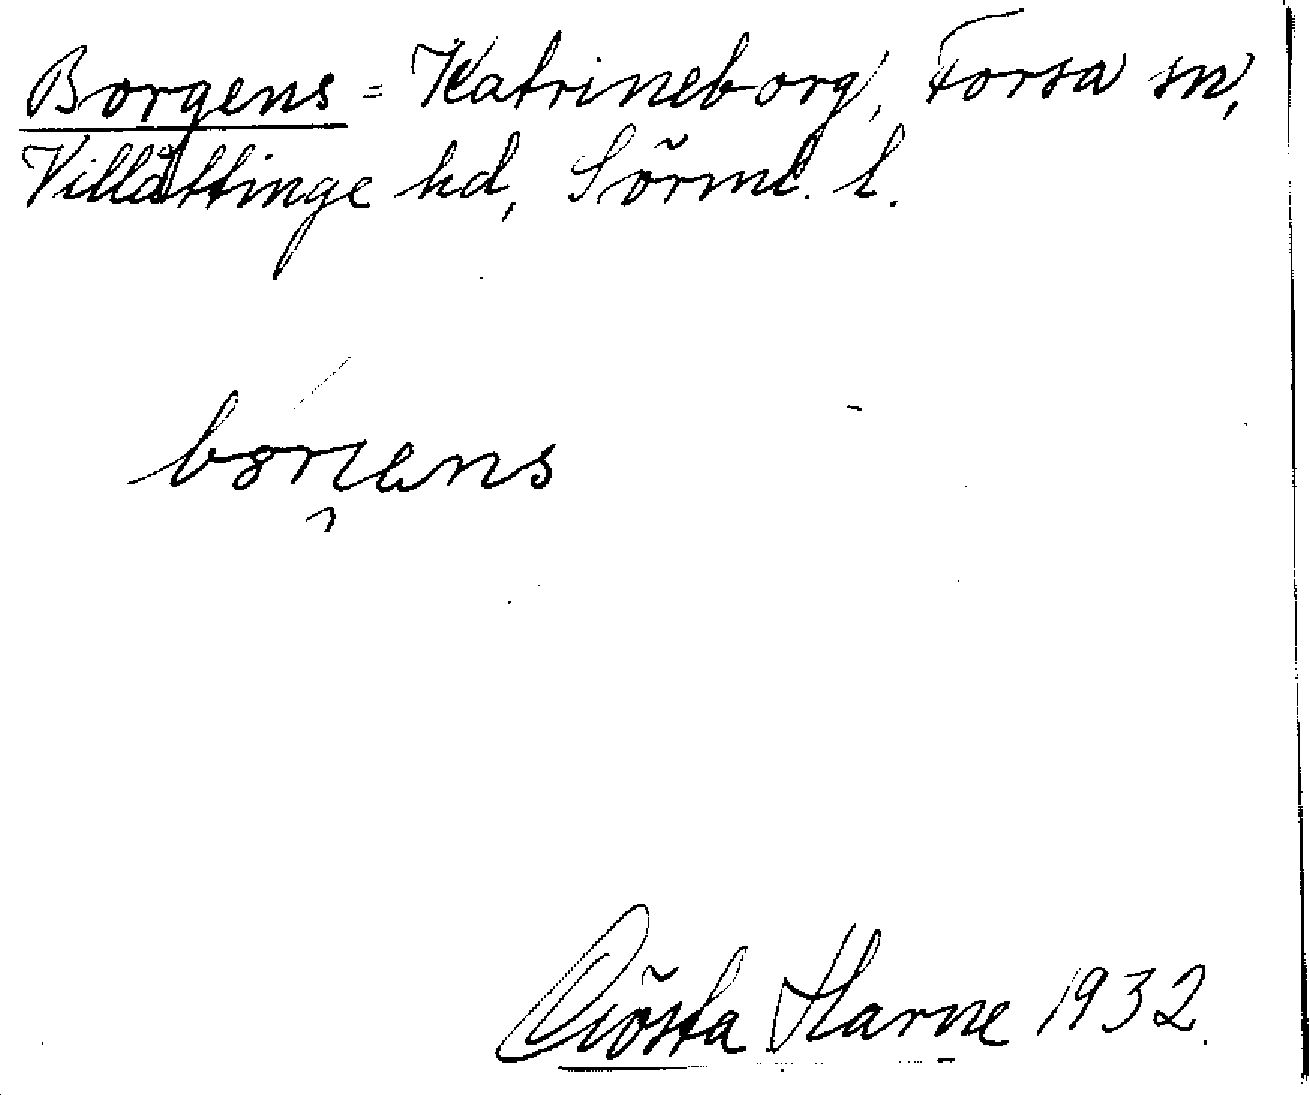 Borgens = Katrineborg, Forsa sn,
Villåttinge hd, Sörml. l.
Gösta Harne 1932.